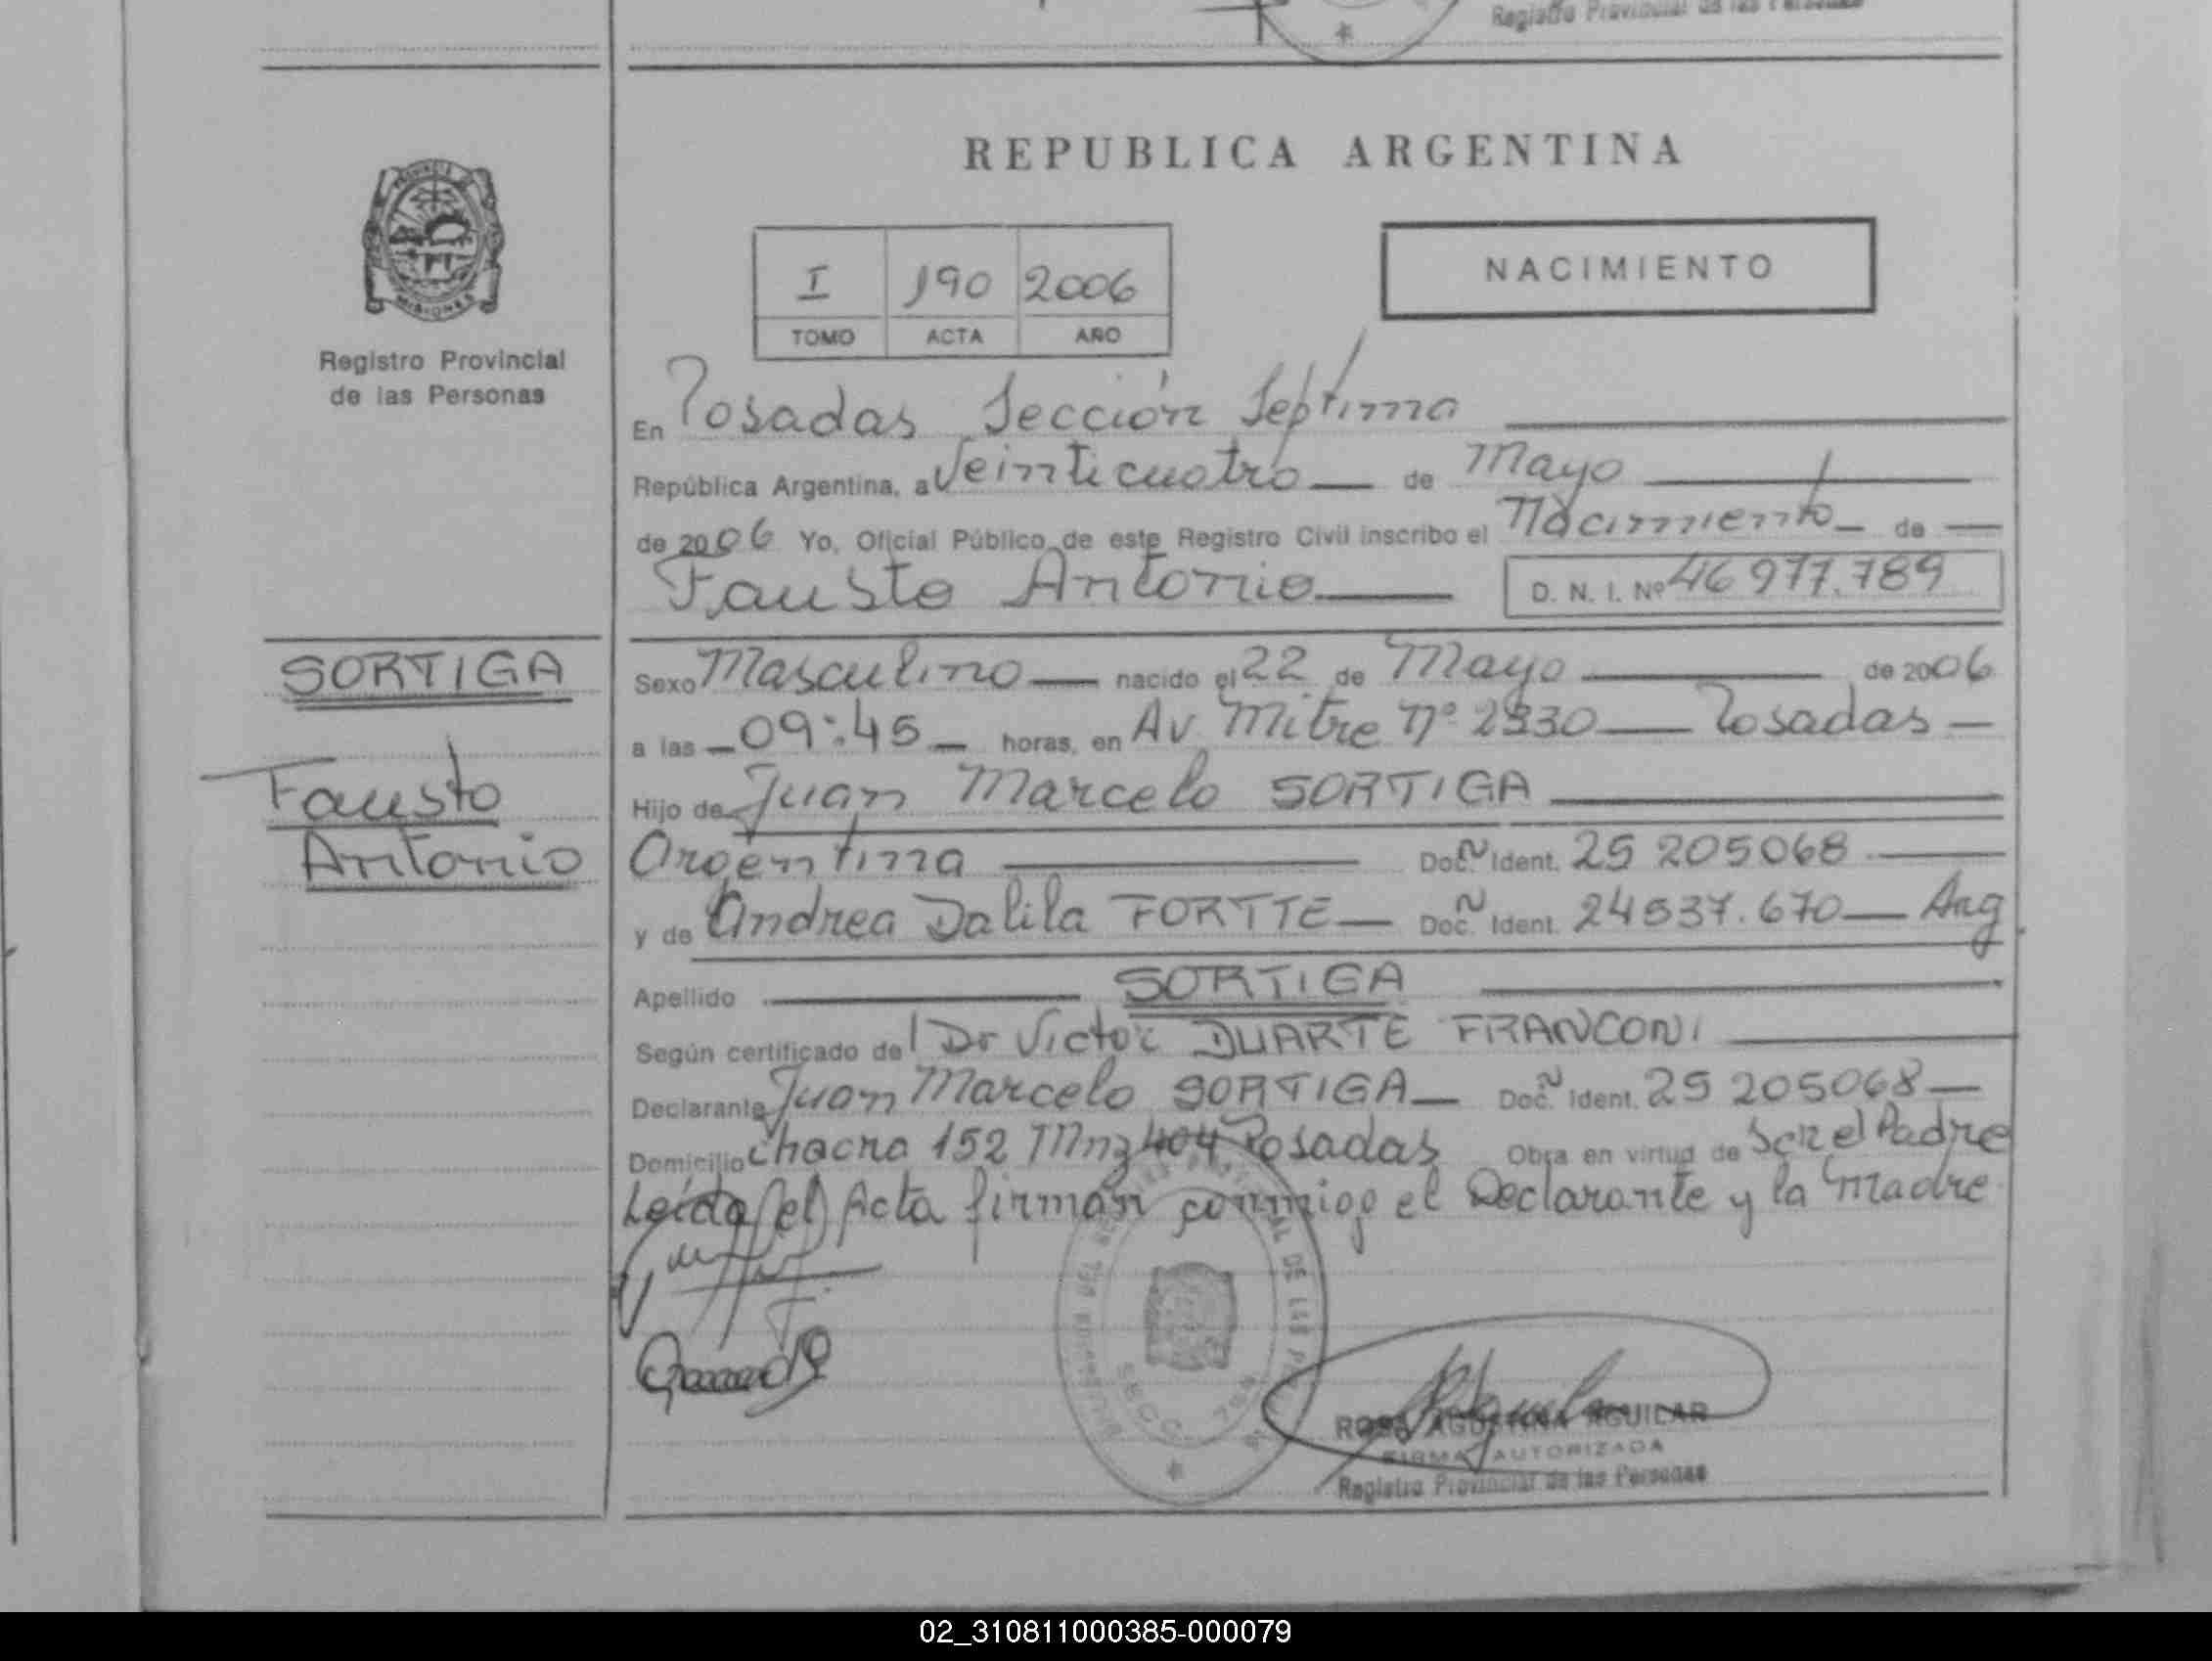 Registro Provincial de las Personas
Registro Provincial
de las Personas
REPUBLICA ARGENTINA
I 190 2006
TOMO ACTA AÑO
NACIMIENTO
En Posadas Sección Septima
República Argentina, a Veinticuatro de Mayo
de 2006 Yo, Oficial Público de este Registro Civil inscribo el Nacimiento de
Fausto Antonio D. N. I. Nº 46 977.789
SORTIGA
Fausto
Antonio
Sexo Masculino nacido el 22 de Mayo de 2006
a las 09:45 horas, en Av Mitre Nº 2330 Posadas
Hijo de Juan Marcelo SORTIGA
Argentina Doc. Ident. 25 205068
y de Andrea Dalila FORTTE Doc. Ident. 24537.670 Arg
Apellido SORTIGA
Según certificado del Dr Victor DUARTE FRANCONI
Declarante Juan Marcelo SORTIGA Doc. Ident. 25 205068
Domicilio Chacra 152 Mnz 404 Posadas Obra en virtud de Ser el Padre
Leida el Acta firman conmigo el Declarante y la Madre
ROSA AGUSTINA AGUILAR
FIRMA AUTORIZADA
Registro Provincial de las Personas
02_310811000385-000079